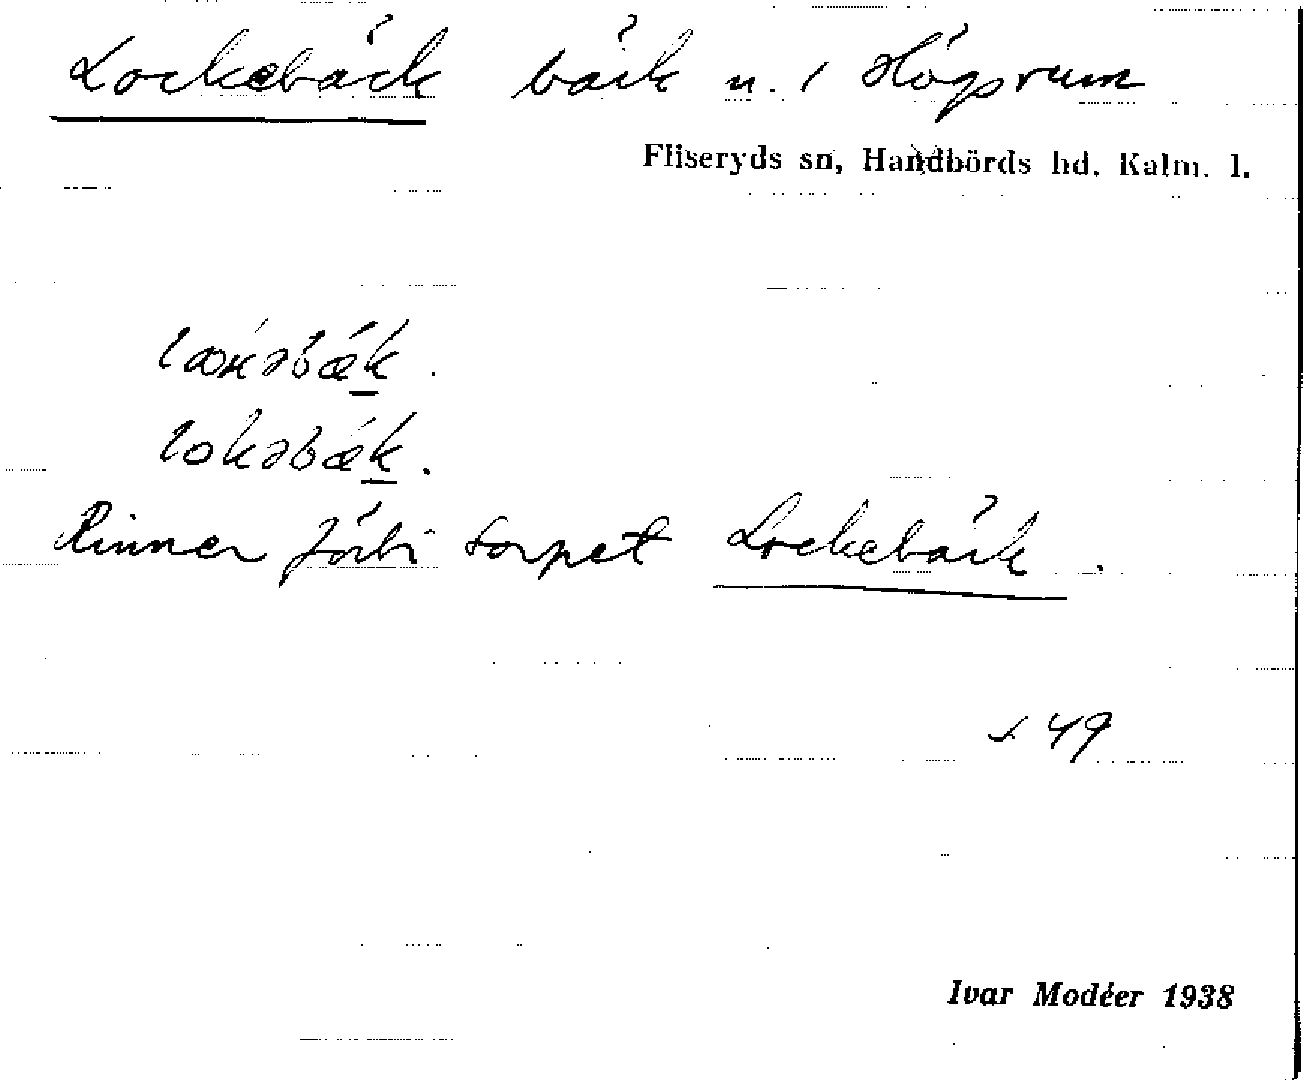 Lockebäck bäck n. i Högsrum
Fliseryds sn, Handbörds hd, Kalm. l.
lokəbæk.
Rinner förbi torpet Lockebäck.
+ 49
Ivar Modéer 1938